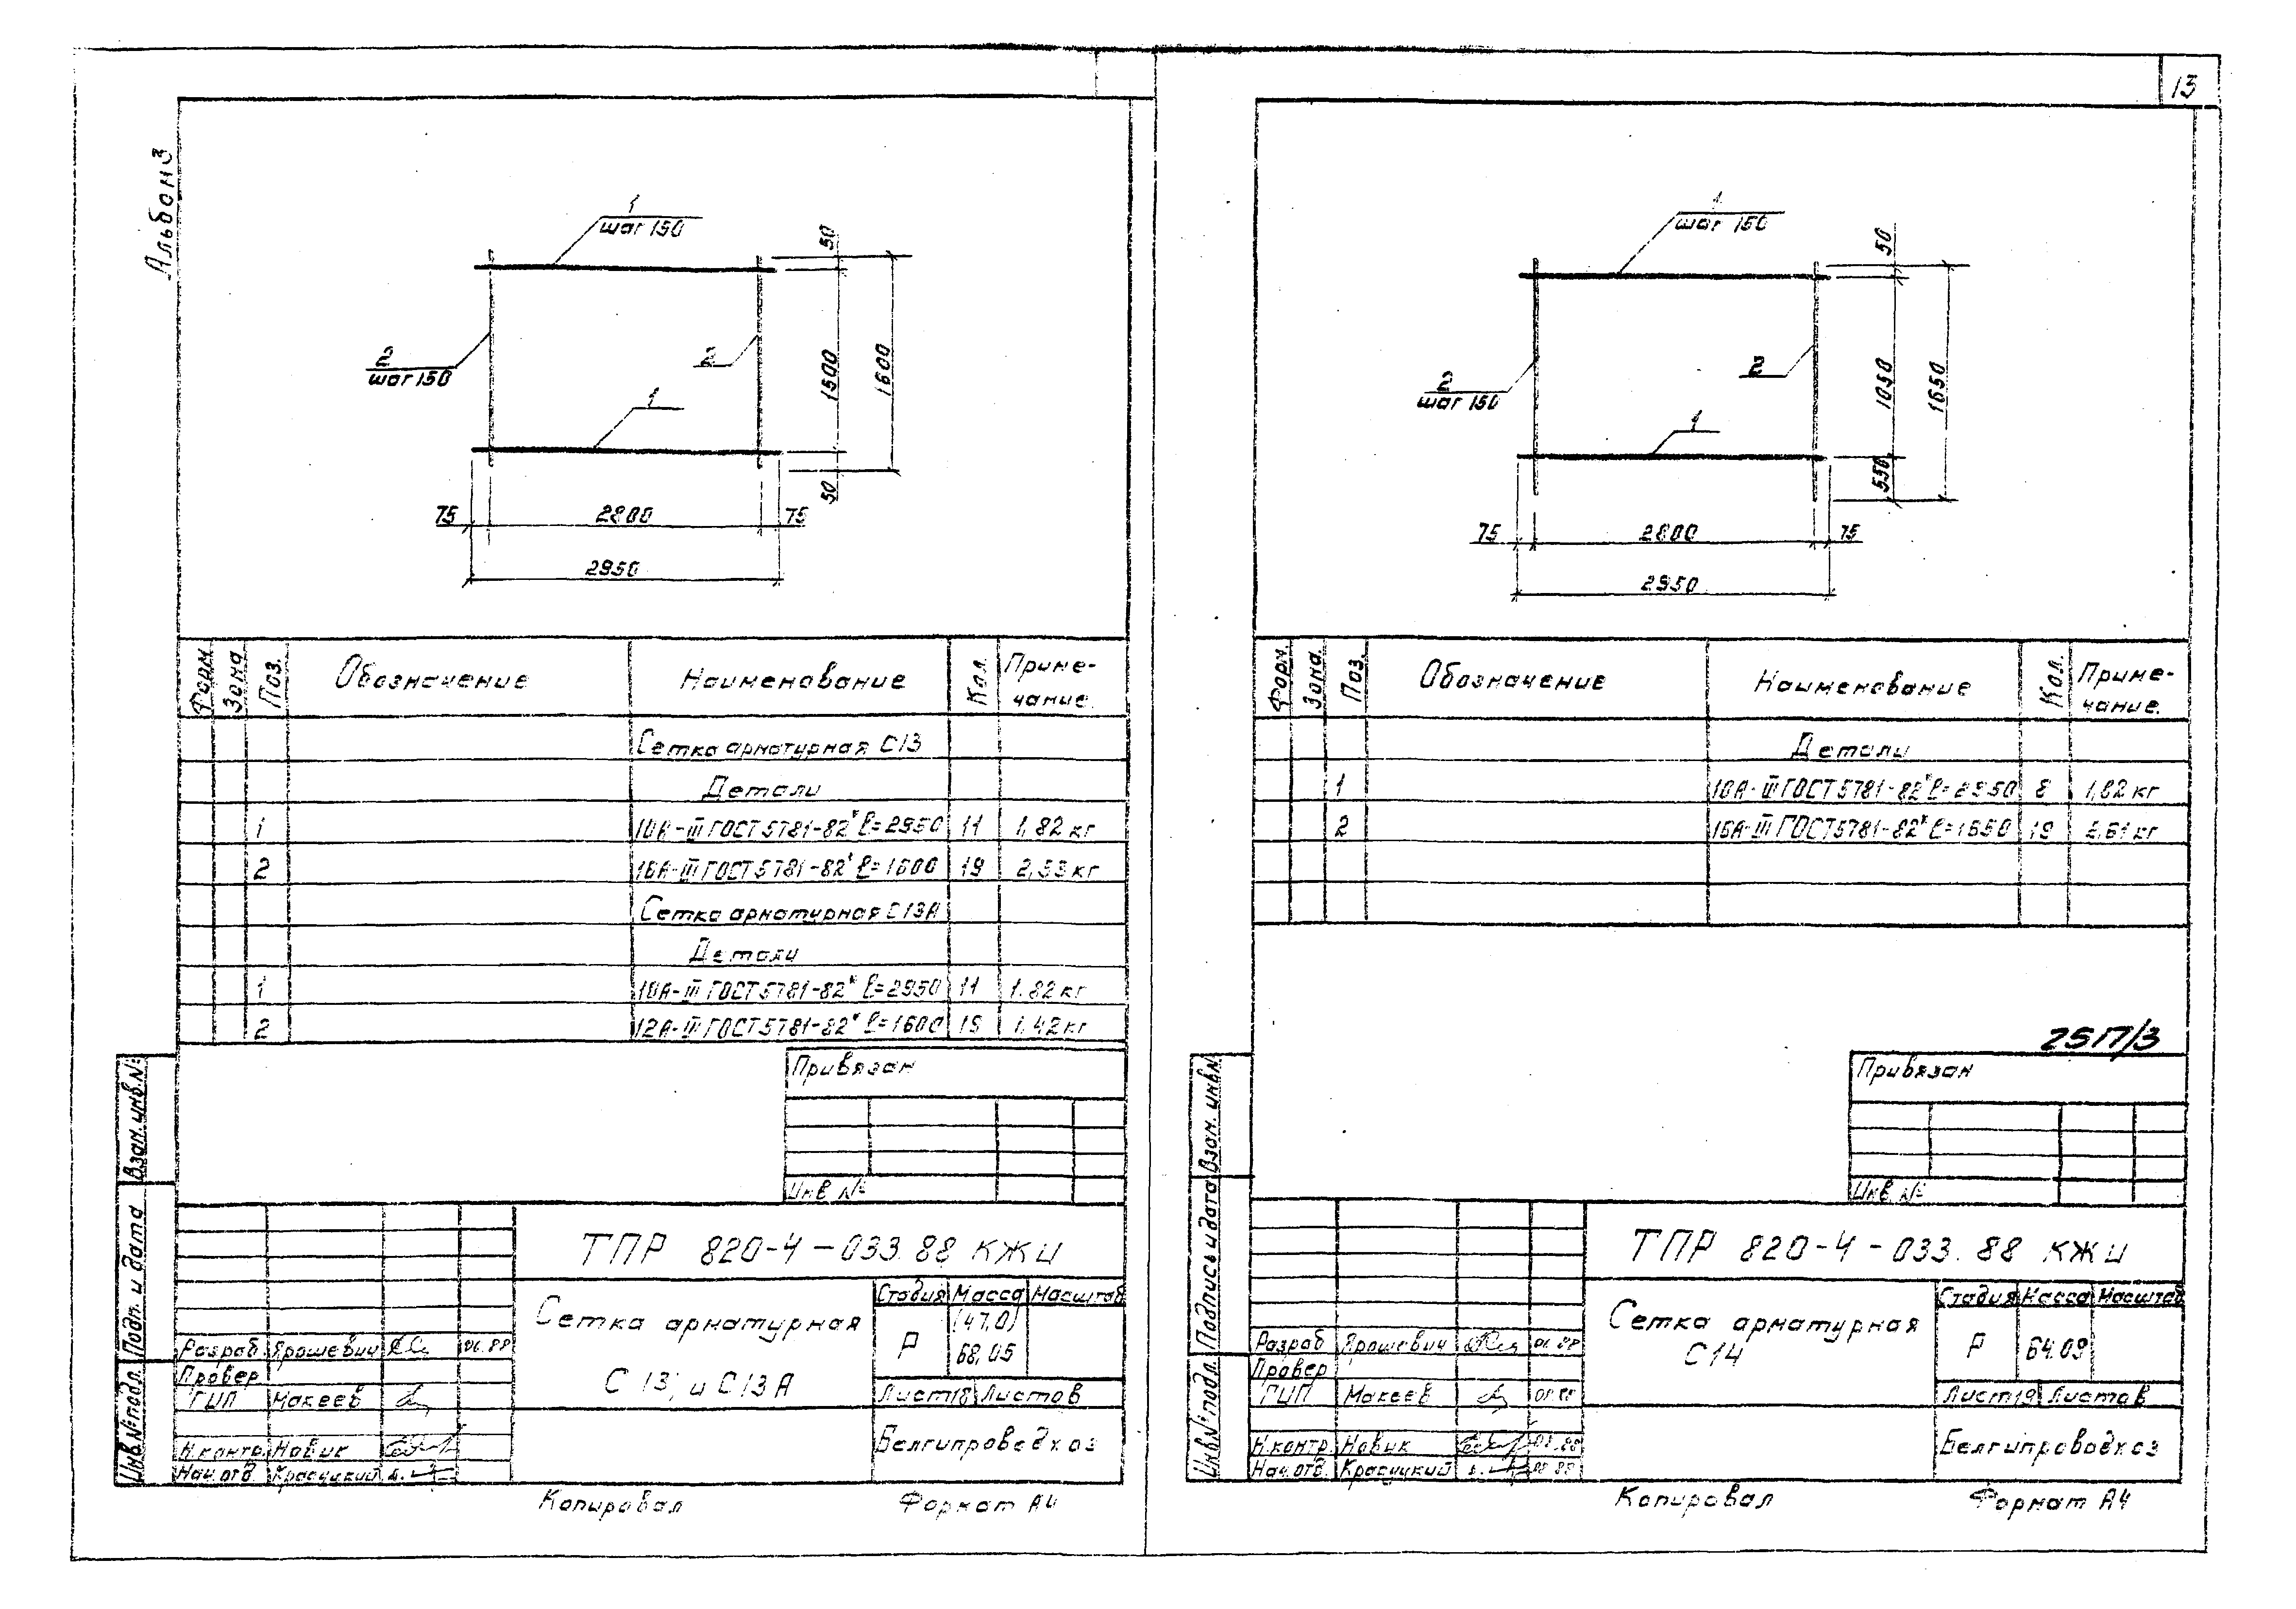 13
Альбом 3
1
шаг 150
2
шаг 150
2
1
50
1500
50
1600
75
2800
75
2950
Форм.
Зона
Поз.
Обозначение
Наименование
Кол.
Приме-
чание.
Сетка арматурная С13
Детали
1 10А-III ГОСТ 5781-82* ℓ=2950 11 1,82 кг
2 16А-III ГОСТ 5781-82* ℓ=1600 19 2,53 кг
Сетка арматурная С13А
Детали
1 10А-III ГОСТ 5781-82* ℓ=2950 11 1.82 кг
2 12А-III ГОСТ 5781-82* ℓ=1600 19 1,42 кг
Привязан
Инв. №
Взам. инв. №
Подп. и дата
Инв. № подл.
ТПР 820-4-033.88 КЖИ
Сетка арматурная
С 13, и С13А
Стадия Масса Масштаб
(47,0)
Р 68,05
Лист 18 Листов
Белгипроводхоз
Разраб. Ярошевич 06.88
Провер
ГИП Макеев
Н.контр. Новик
Нач.отд. Красуцкий
Копировал Формат А4
1
шаг 150
2
шаг 150
2
1
50
1050
550
1650
75
2800
75
2950
Форм.
Зона.
Поз.
Обозначение
Наименование
Кол.
Приме-
чание.
Детали
1 10А-III ГОСТ 5781-82* ℓ=2950 8 1,82 кг
2 16А-III ГОСТ 5781-82* ℓ=1650 19 2,61 кг
25П/3
Привязан
Инв. №
Взам. инв. №
Подпись и дата
Инв. № подл.
ТПР 820-4-033.88 КЖИ
Сетка арматурная
С14
Стадия Масса Масштаб
Р 64.09
Лист 19 Листов
Белгипроводхоз
Разраб Ярошевич 06.88
Провер
ГИП Макеев
Н.контр. Новик
Нач.отд. Красуцкий
Копировал Формат А4